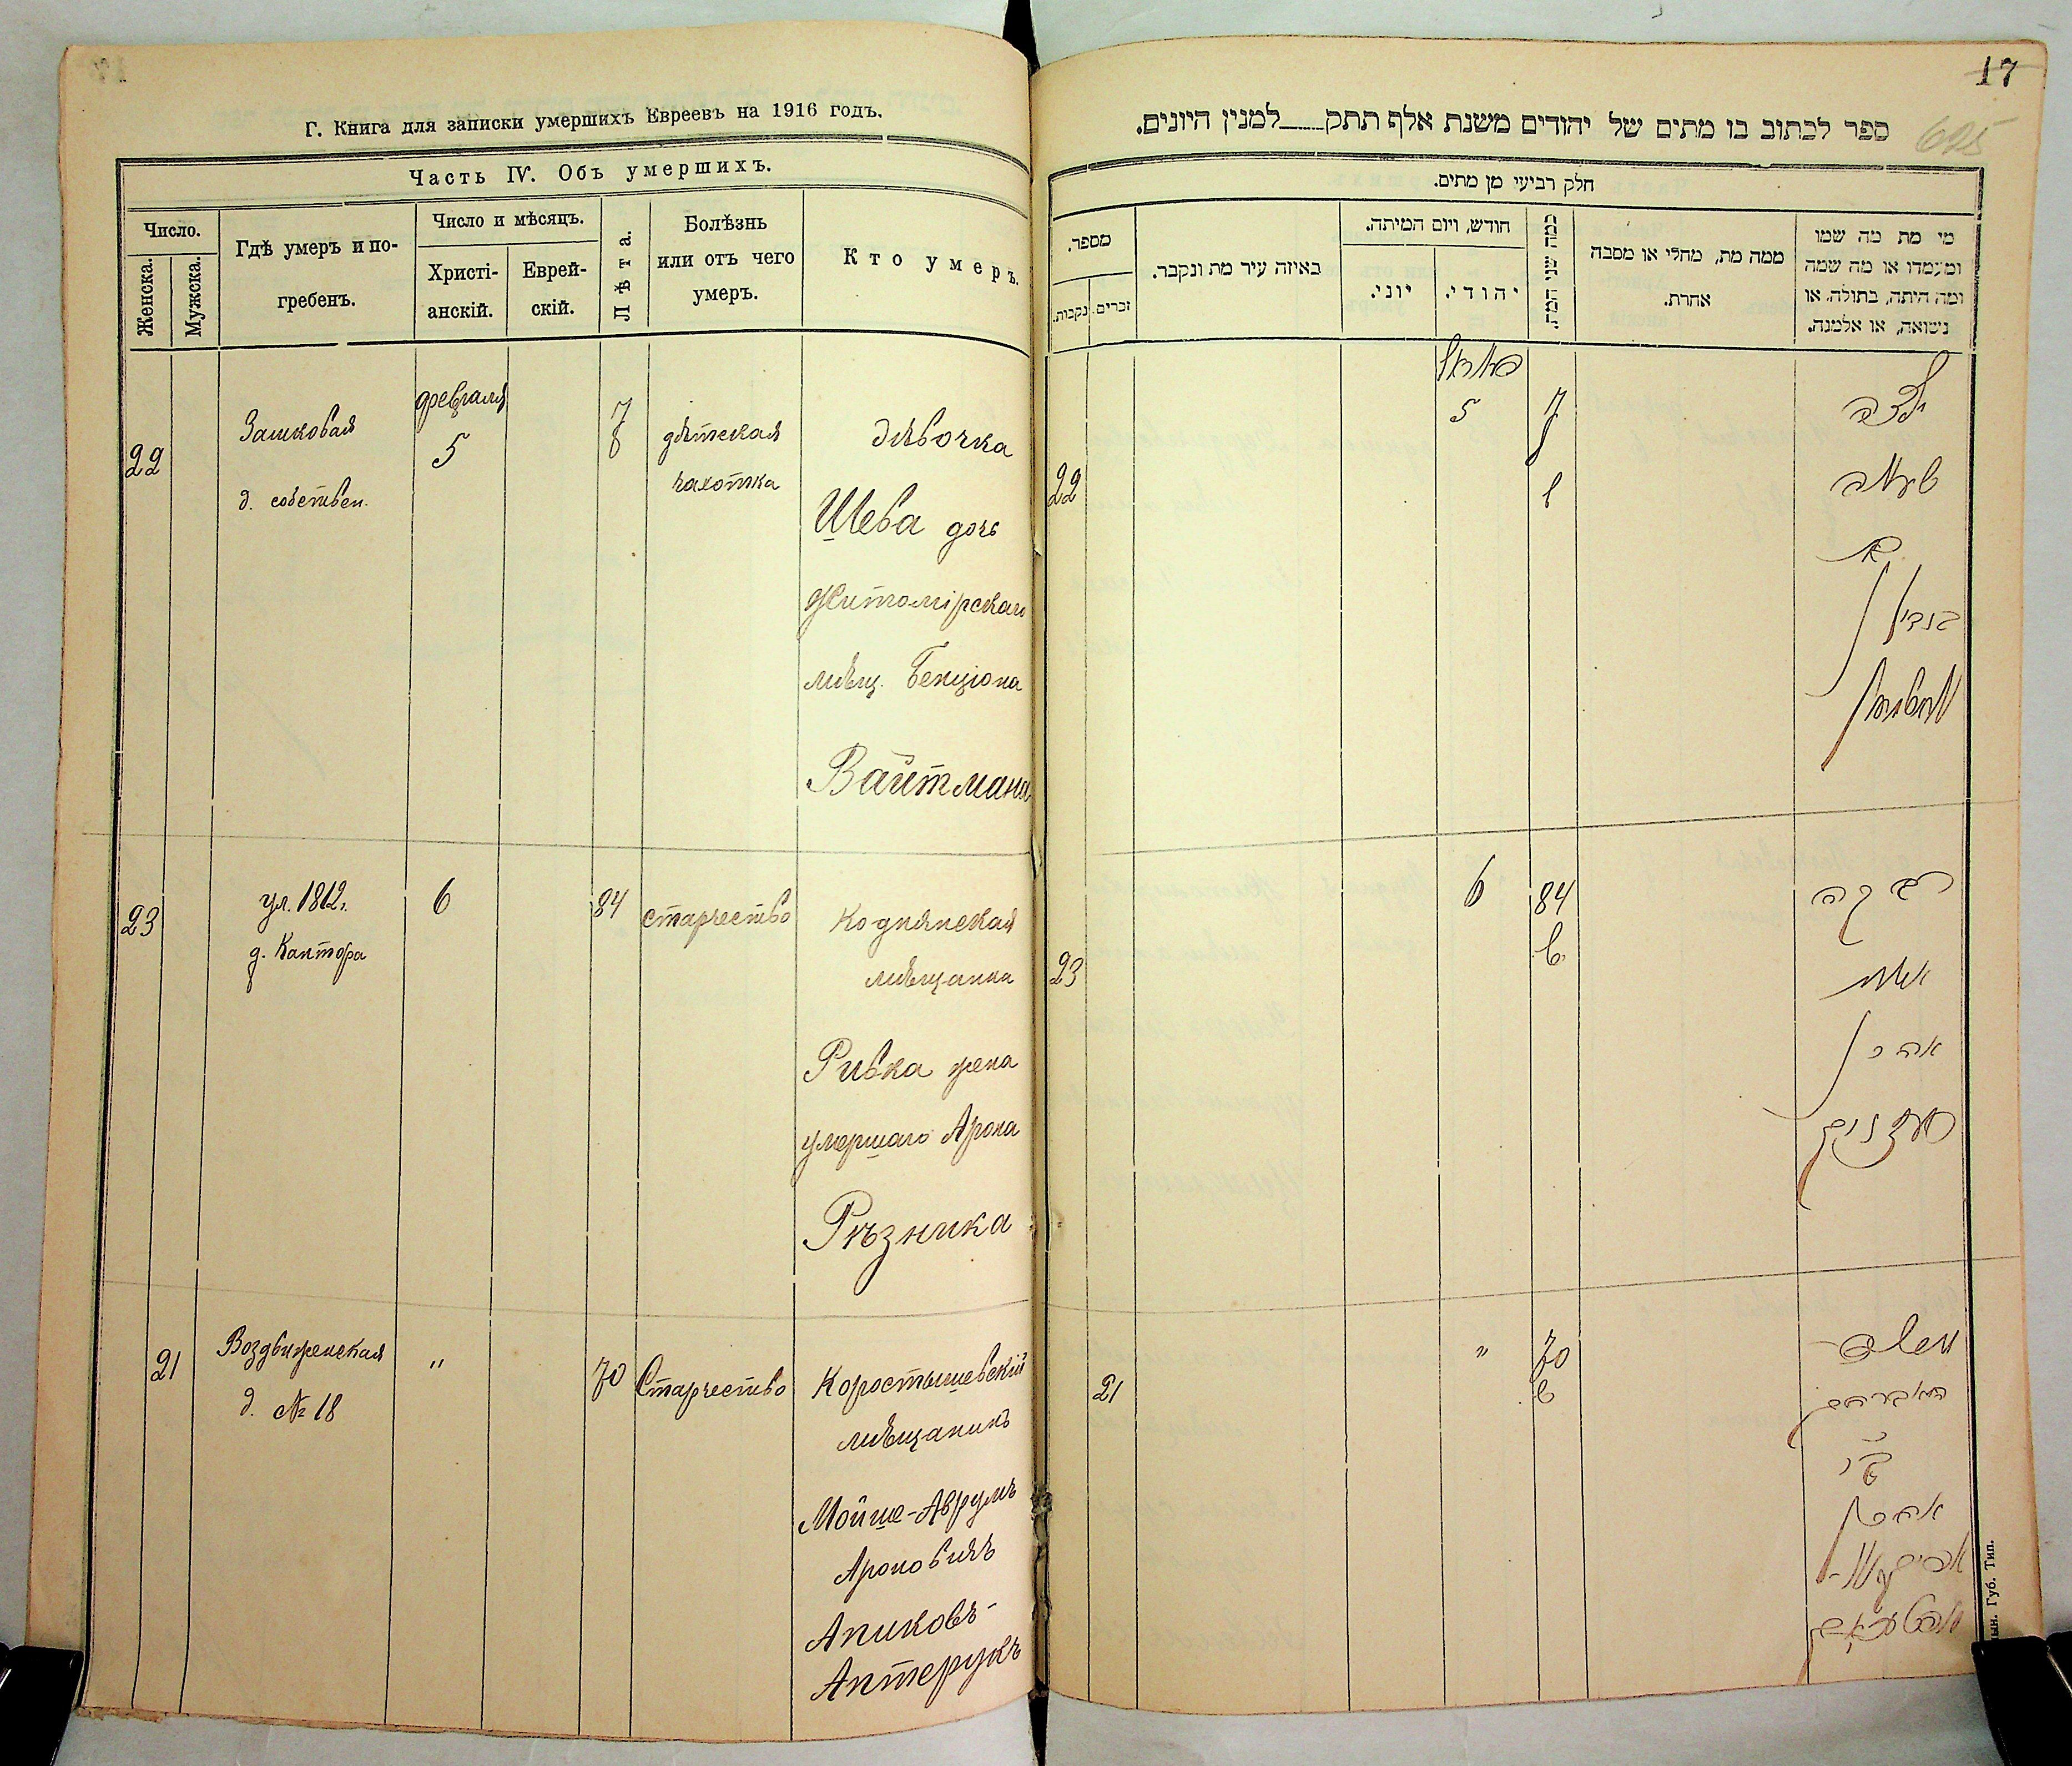 Г. Книга для записки умершихъ Евреевъ на 1916 годъ.
Часть IV. Объ умершихъ.
Число.
Женска.
Мужска.
Гдѣ умеръ и по-
гребенъ.
Число и мѣсяцъ.
Христі-
анскій.
Еврей-
скій.
Лѣта.
Болѣзнь
или отъ чего
умеръ.
Кто умеръ.
22
Замковая
д. собствен.
февраля
5
7
дѣтская
чахотка
дѣвочка
Шева дочь
Житомірскаго
мѣщ. Бенціона
Вайтмана
23
ул. 1812 г.
д. Кантора
6
84
старчество
Коднянская
мѣщанка
Ривка жена
умершаго Арона
Рѣзника
21
Воздвиженская
д. № 18
"
70
Старчество
Коростышевскій
мѣщанинъ
Мойше-Аврумъ
Ароновичъ
Апиковъ-
Аптерукъ
17
625
ספר לכתוב בו מתים של יהודים משנת אלף תתק___למנין היונים.
חלק רביעי מן מתים.
מספר.
נקבות.
זכרים.
באיזה עיר מת ונקבר.
חודש, ויום המיתה.
יוני.
יהודי.
כמה שני המת.
ממה מת, מחלי או מסבה
אחרת.
מי מת מה שמו
ומעמדו או מה שמה
ומה היתה, בתולה, או
נשואה, או אלמנה.
22
5
7
ילדה
שעווה
בת
23
6
84
רבקה
אשת
אהרן
רעזניק
21
"
70
משה
אברהם
אהרן